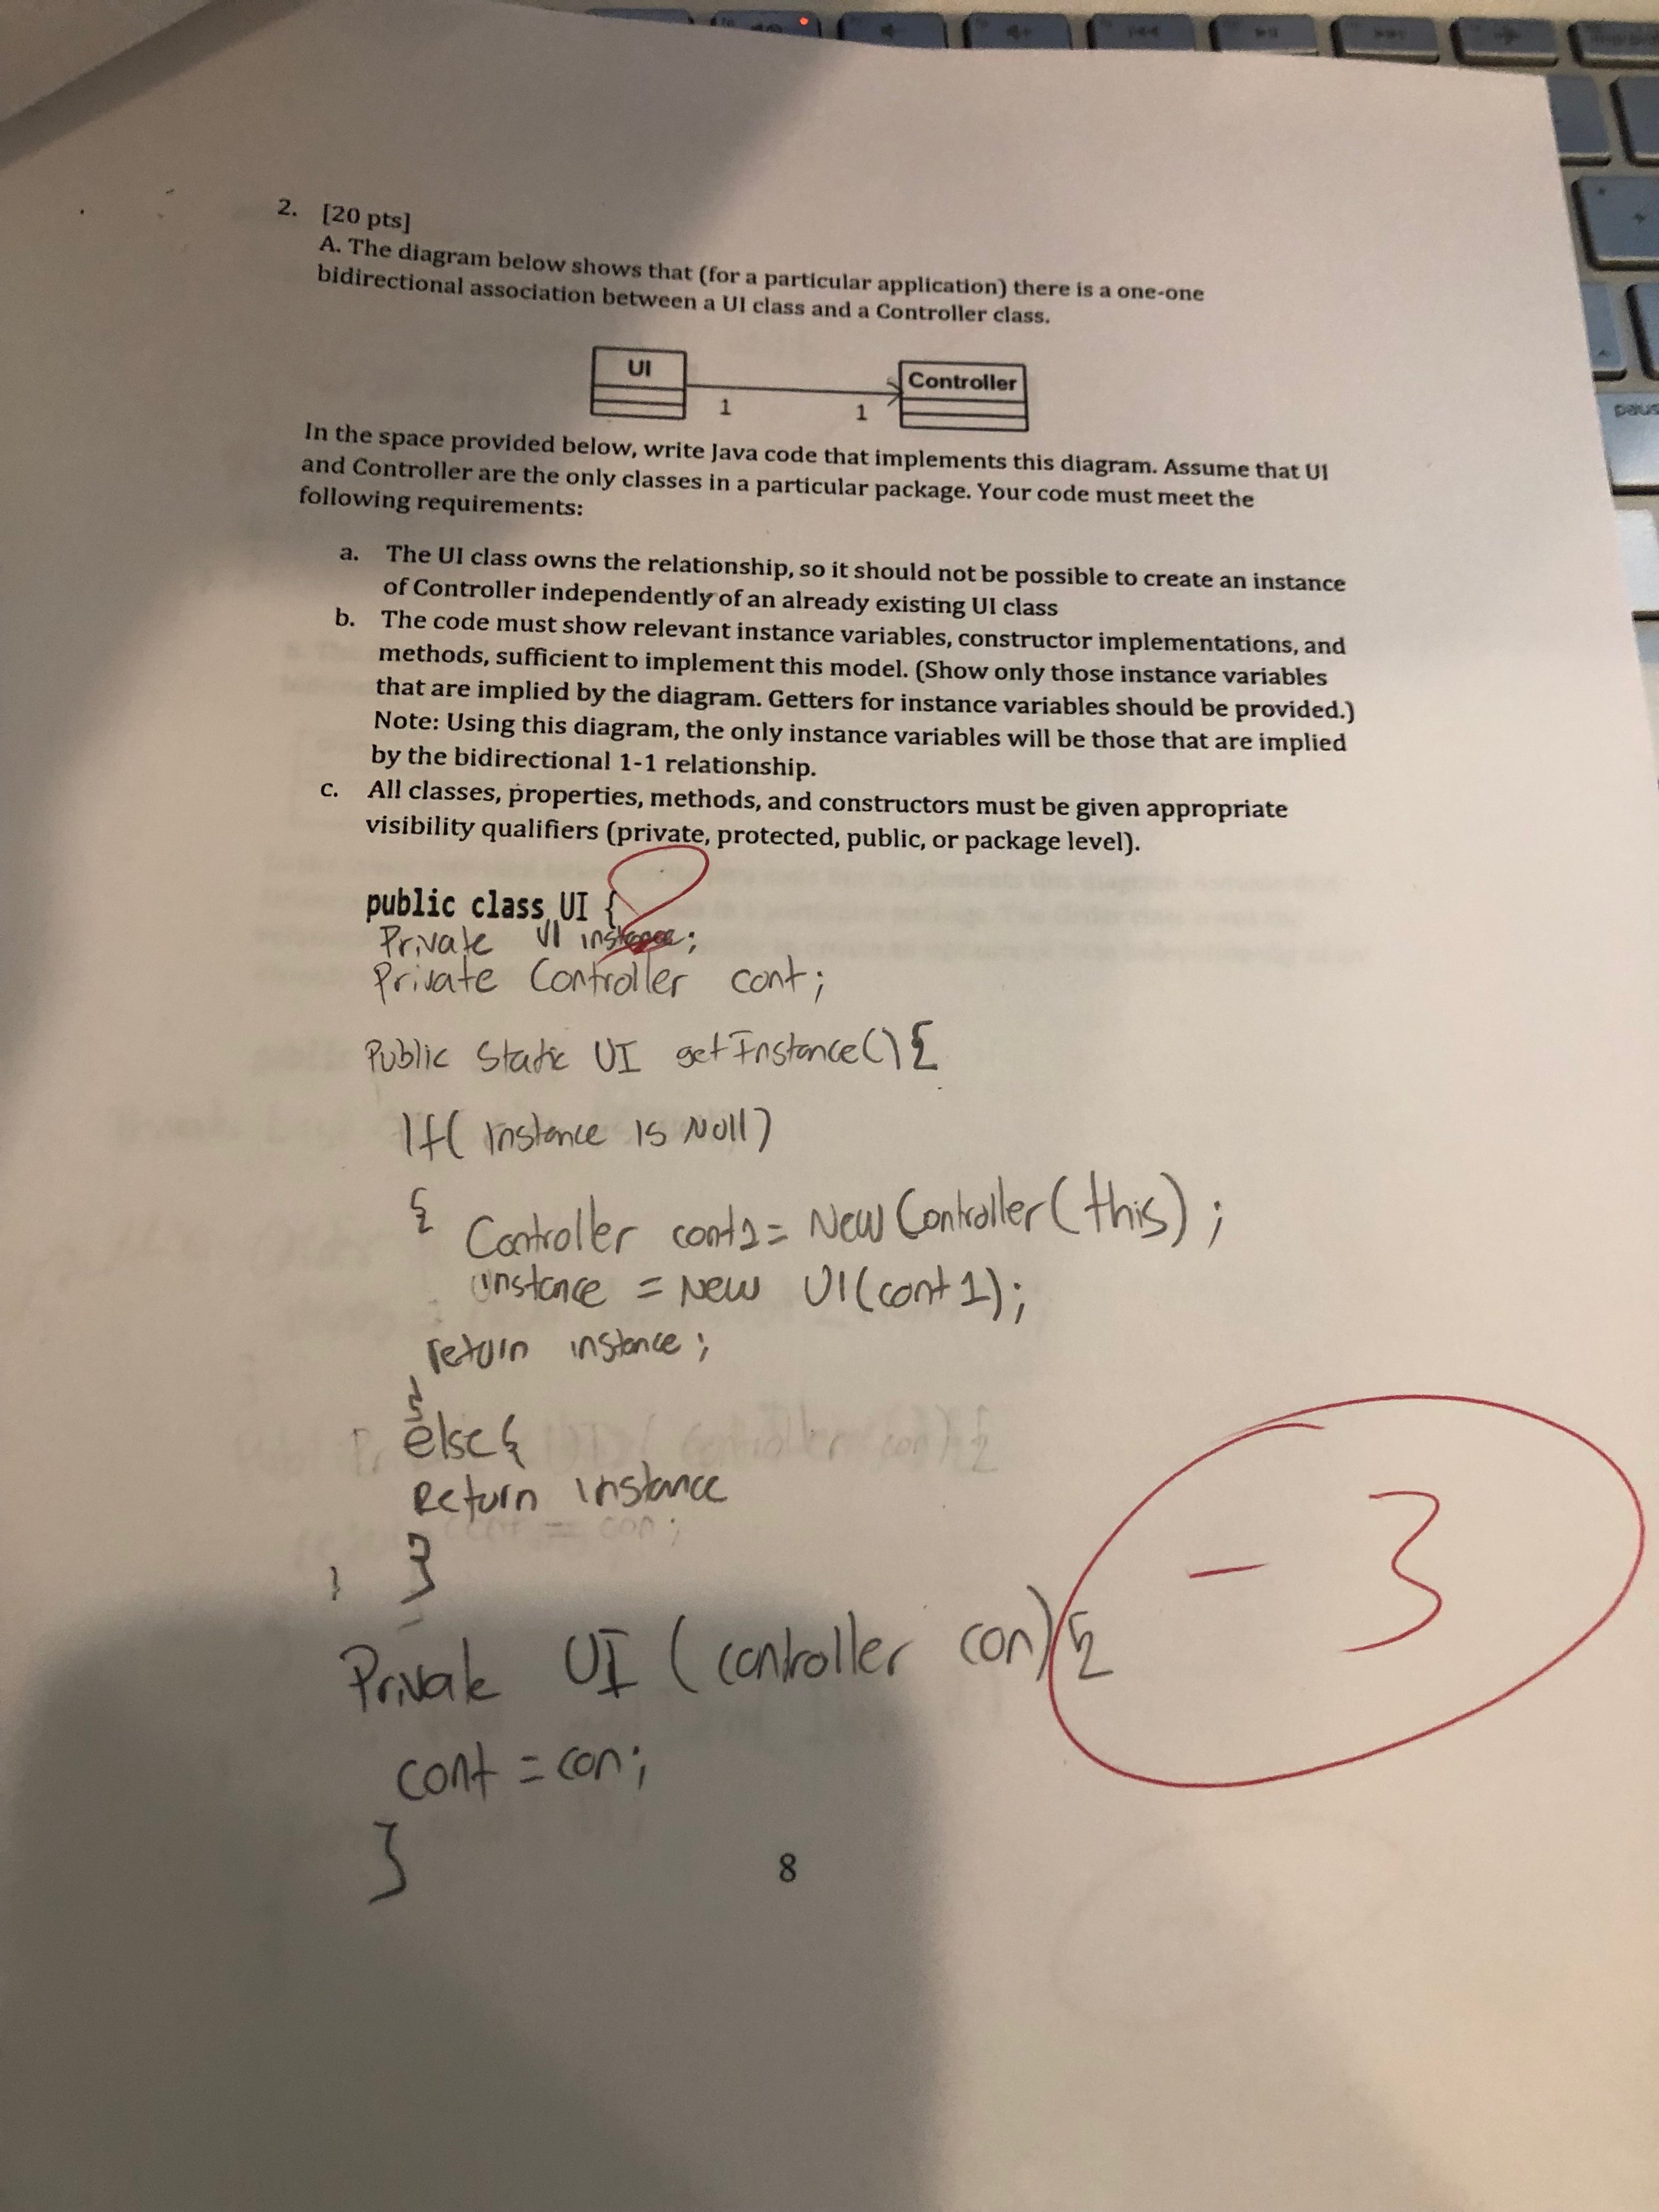 2. [20 pts]
A. The diagram below shows that (for a particular application) there is a one-one
bidirectional association between a UI class and a Controller class.
UI
Controller
1
1
In the space provided below, write Java code that implements this diagram. Assume that UI
and Controller are the only classes in a particular package. Your code must meet the
following requirements:
a. The UI class owns the relationship, so it should not be possible to create an instance
of Controller independently of an already existing UI class
b. The code must show relevant instance variables, constructor implementations, and
methods, sufficient to implement this model. (Show only those instance variables
that are implied by the diagram. Getters for instance variables should be provided.)
Note: Using this diagram, the only instance variables will be those that are implied
by the bidirectional 1-1 relationship.
c. All classes, properties, methods, and constructors must be given appropriate
visibility qualifiers (private, protected, public, or package level).
public class UI {
Private UI instance;
Private Controller cont;
Public Static UI getInstance(){
If( instance is Null)
{ Controller cont1= New Controller(this);
instance = New UI(cont1);
return instance;
}
else{
Return instance
}
}
Private UI (controller con){
cont = con;
}
- 3
8
paus